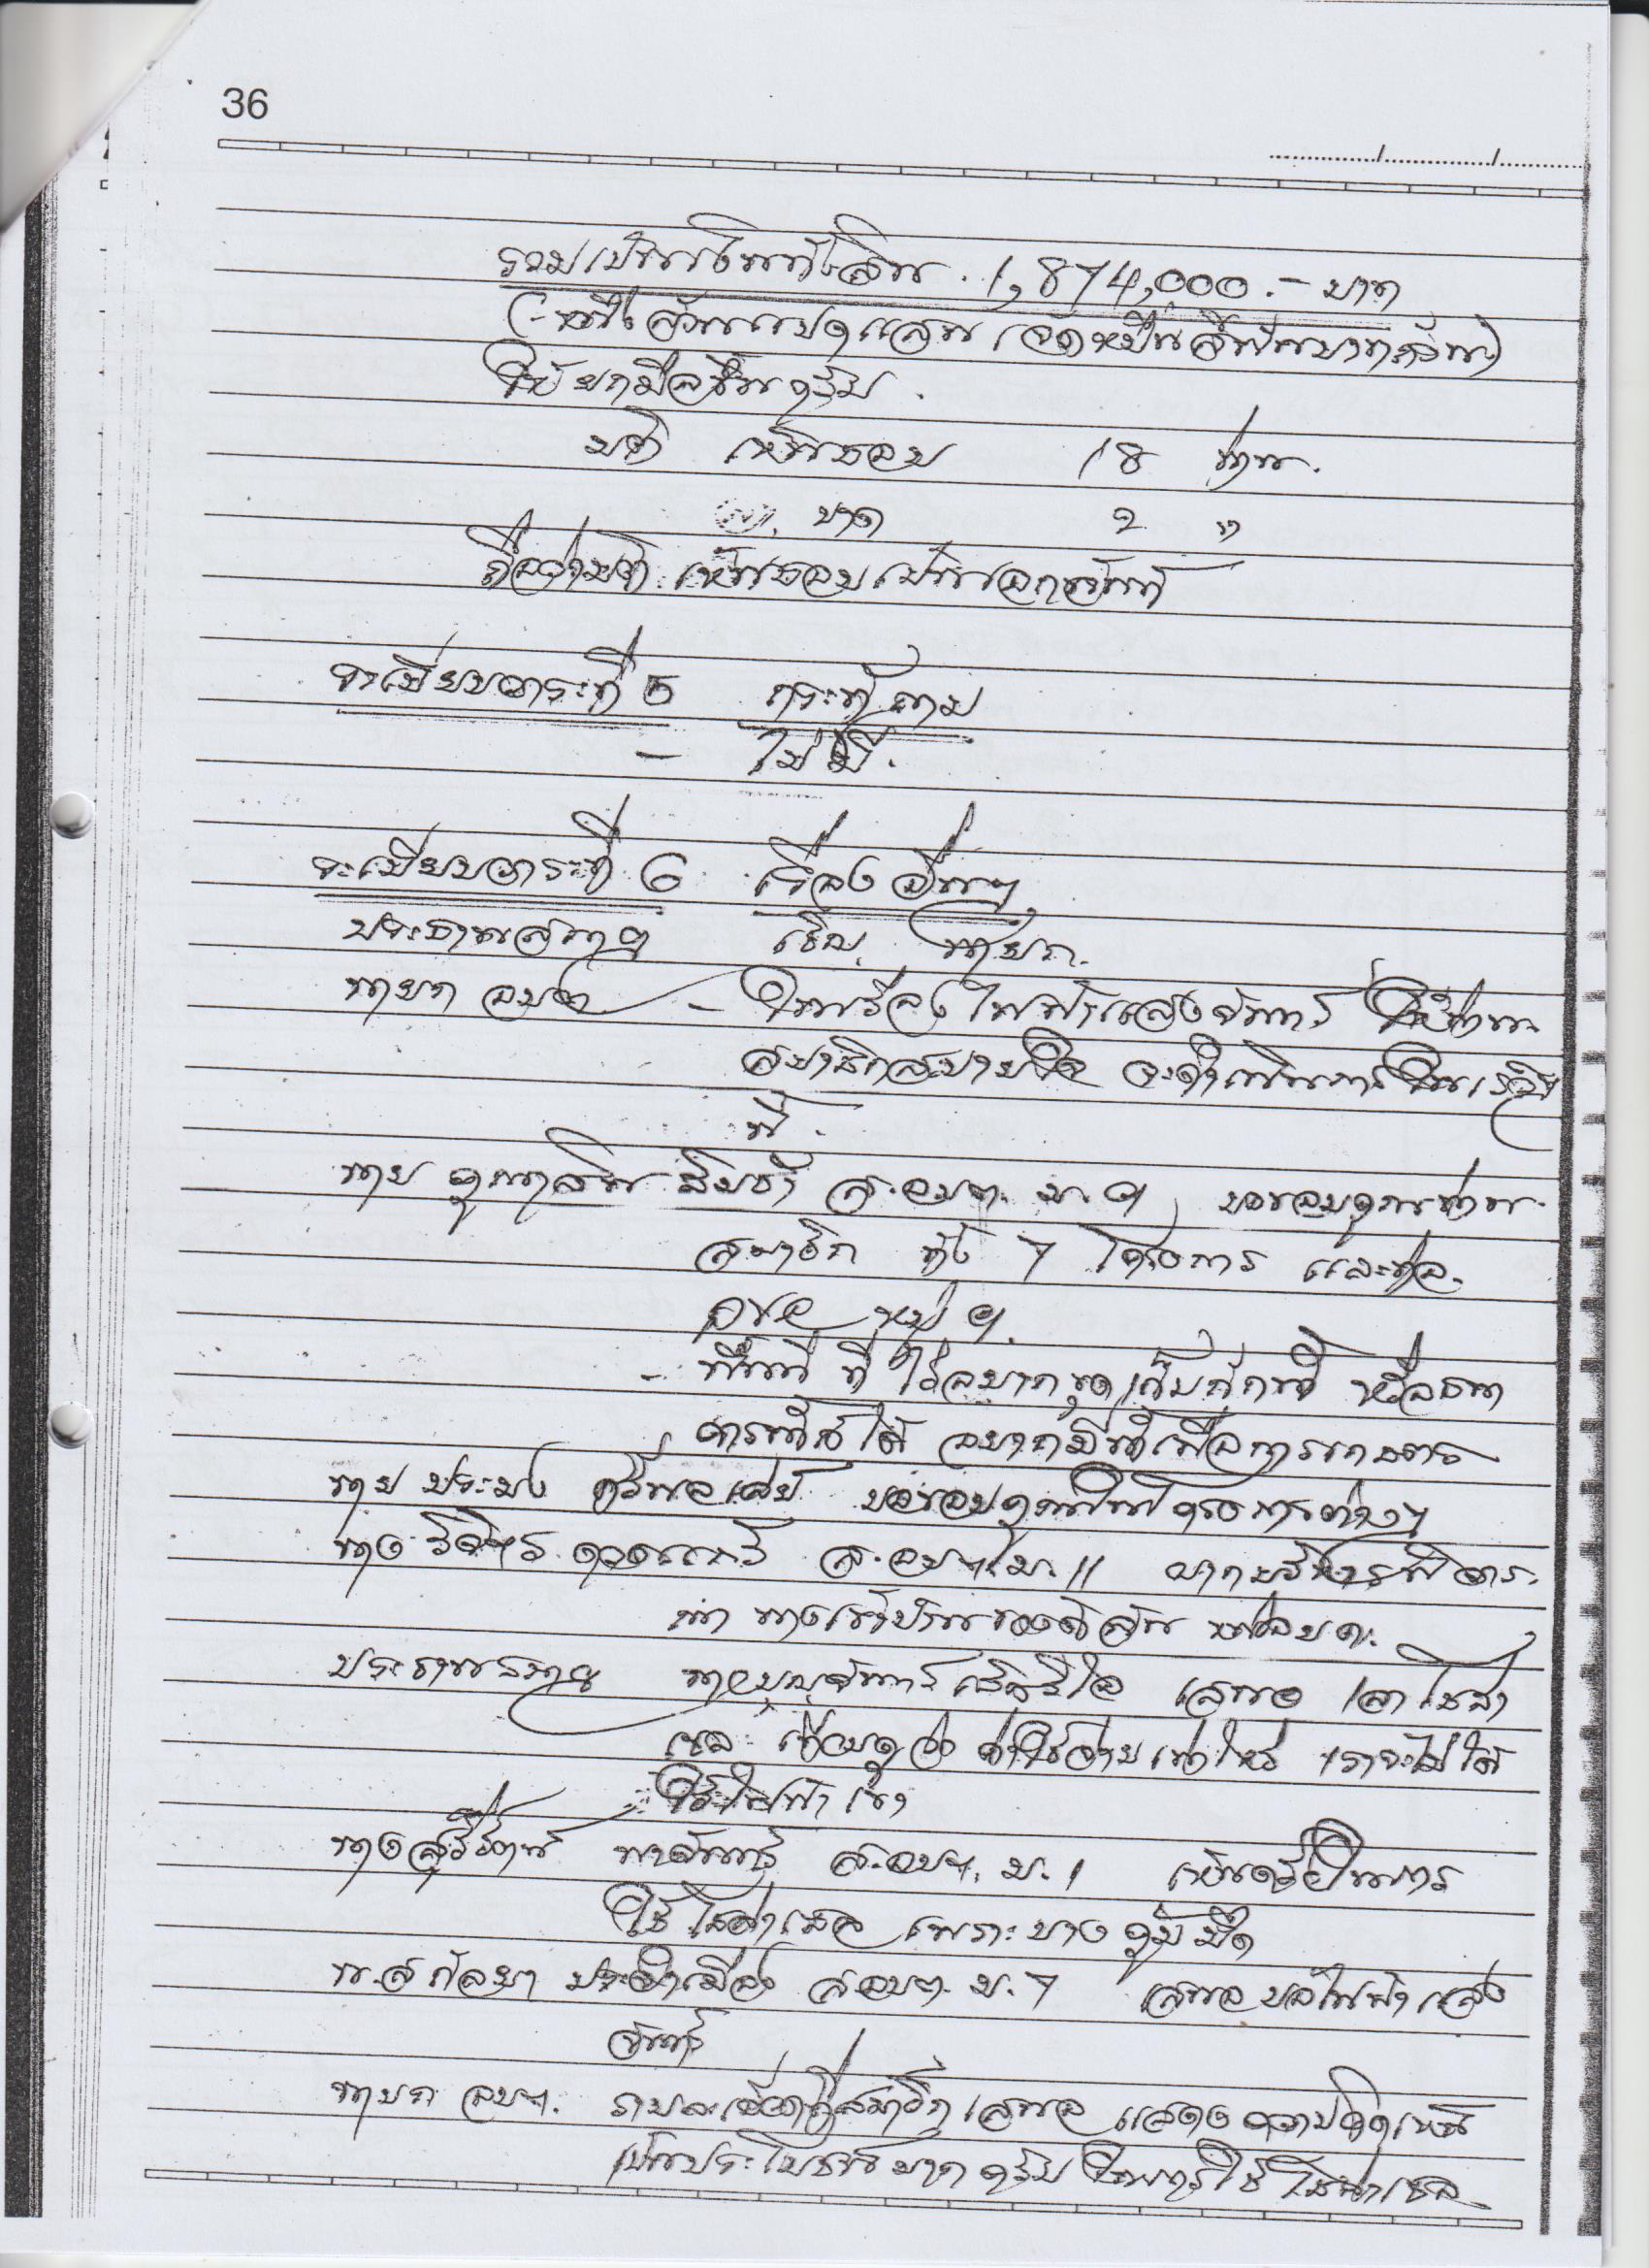 36
รวมเป็นเงินทั้งสิ้น 1,874,000.- บาท
(-หนึ่งล้านแปดแสนเจ็ดหมื่นสี่พันบาทถ้วน)
ให้ยกมือขึนครับ.
มติ เห็นชอบ 18 ท่าน.
ขาด 2 "
ถือว่ามติ เห็นชอบเป็นเอกฉันท์
ระเบียบวาระที่ 5 กระทู้ถาม
- ไม่มี.
ระเบียบวาระที่ 6 เรื่องอื่นๆ
ประธานสภาฯ เชิญ นายก.
นายก อบต - ในเรื่องไฟฟ้าแสงจันทร์ ให้ท่าน
สมาชิกสบายใจ จะดำเนินการในเร็วๆ
นี้.
นาย ส.อบต. ม. ขอขอบคุณท่าน
สมาชิก ทั้ง 7 โครงการ และ
หมู่
- พื้นที่ ที่ ไร่อยากขุดเก็บกักน้ำ หรือธนา
คารน้ำใต้ อยากมีน้ำเพื่อการเกษตร
นาย ประมง ขอขอบคุณในโครงการต่างๆ
นาง ส.อบต. ม. 11 ฝากบริหารพิจาร
ณา ทางเข้าบ้านของดิฉัน หน่อยค่ะ
ประธานสภาฯ นายบุญจันทร์ เสนอ เสาโซล่า
เซล เทียบดูว่า ค่าใช้จ่ายเท่าไหร่ เราจะไม่ได้
ใช้ไฟฟ้าเขา
นางสุรีรัตน์ ส.อบต. ม. 1 เห็นด้วยในการ
ใช้โซล่าเซล เพราะบางจุดมืด
น.ส กัลยา ประจำเมือง ส.อบต. ม. 7 เสนอขอไฟฟ้าแสง
จันทร์
นายก อบต. เสนอ แสดงความคิดเห็น
เป็นประโยชน์มากครับ ในการใช้โซล่าเซล